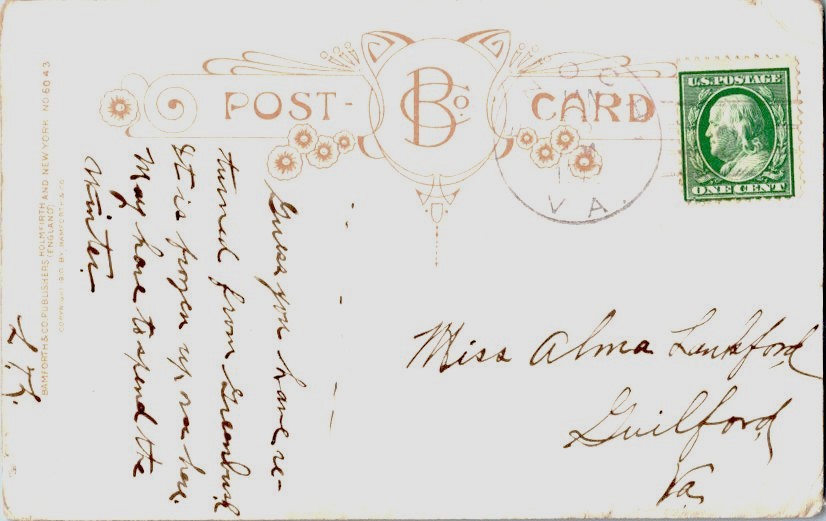 POST-
B Co.
CARD
U.S. POSTAGE
ONE CENT
OC
VA.
Guess you have re-
turned from Greenbush
It is frozen up over here.
May have to spend the
Winter.
Miss Alma Lankford
Guilford
Va.
BAMFORTH & CO. PUBLISHERS HOLMFIRTH AND NEW YORK NO 6043
(ENGLAND)
COPYRIGHT 1910 BY BAMFORTH & CO